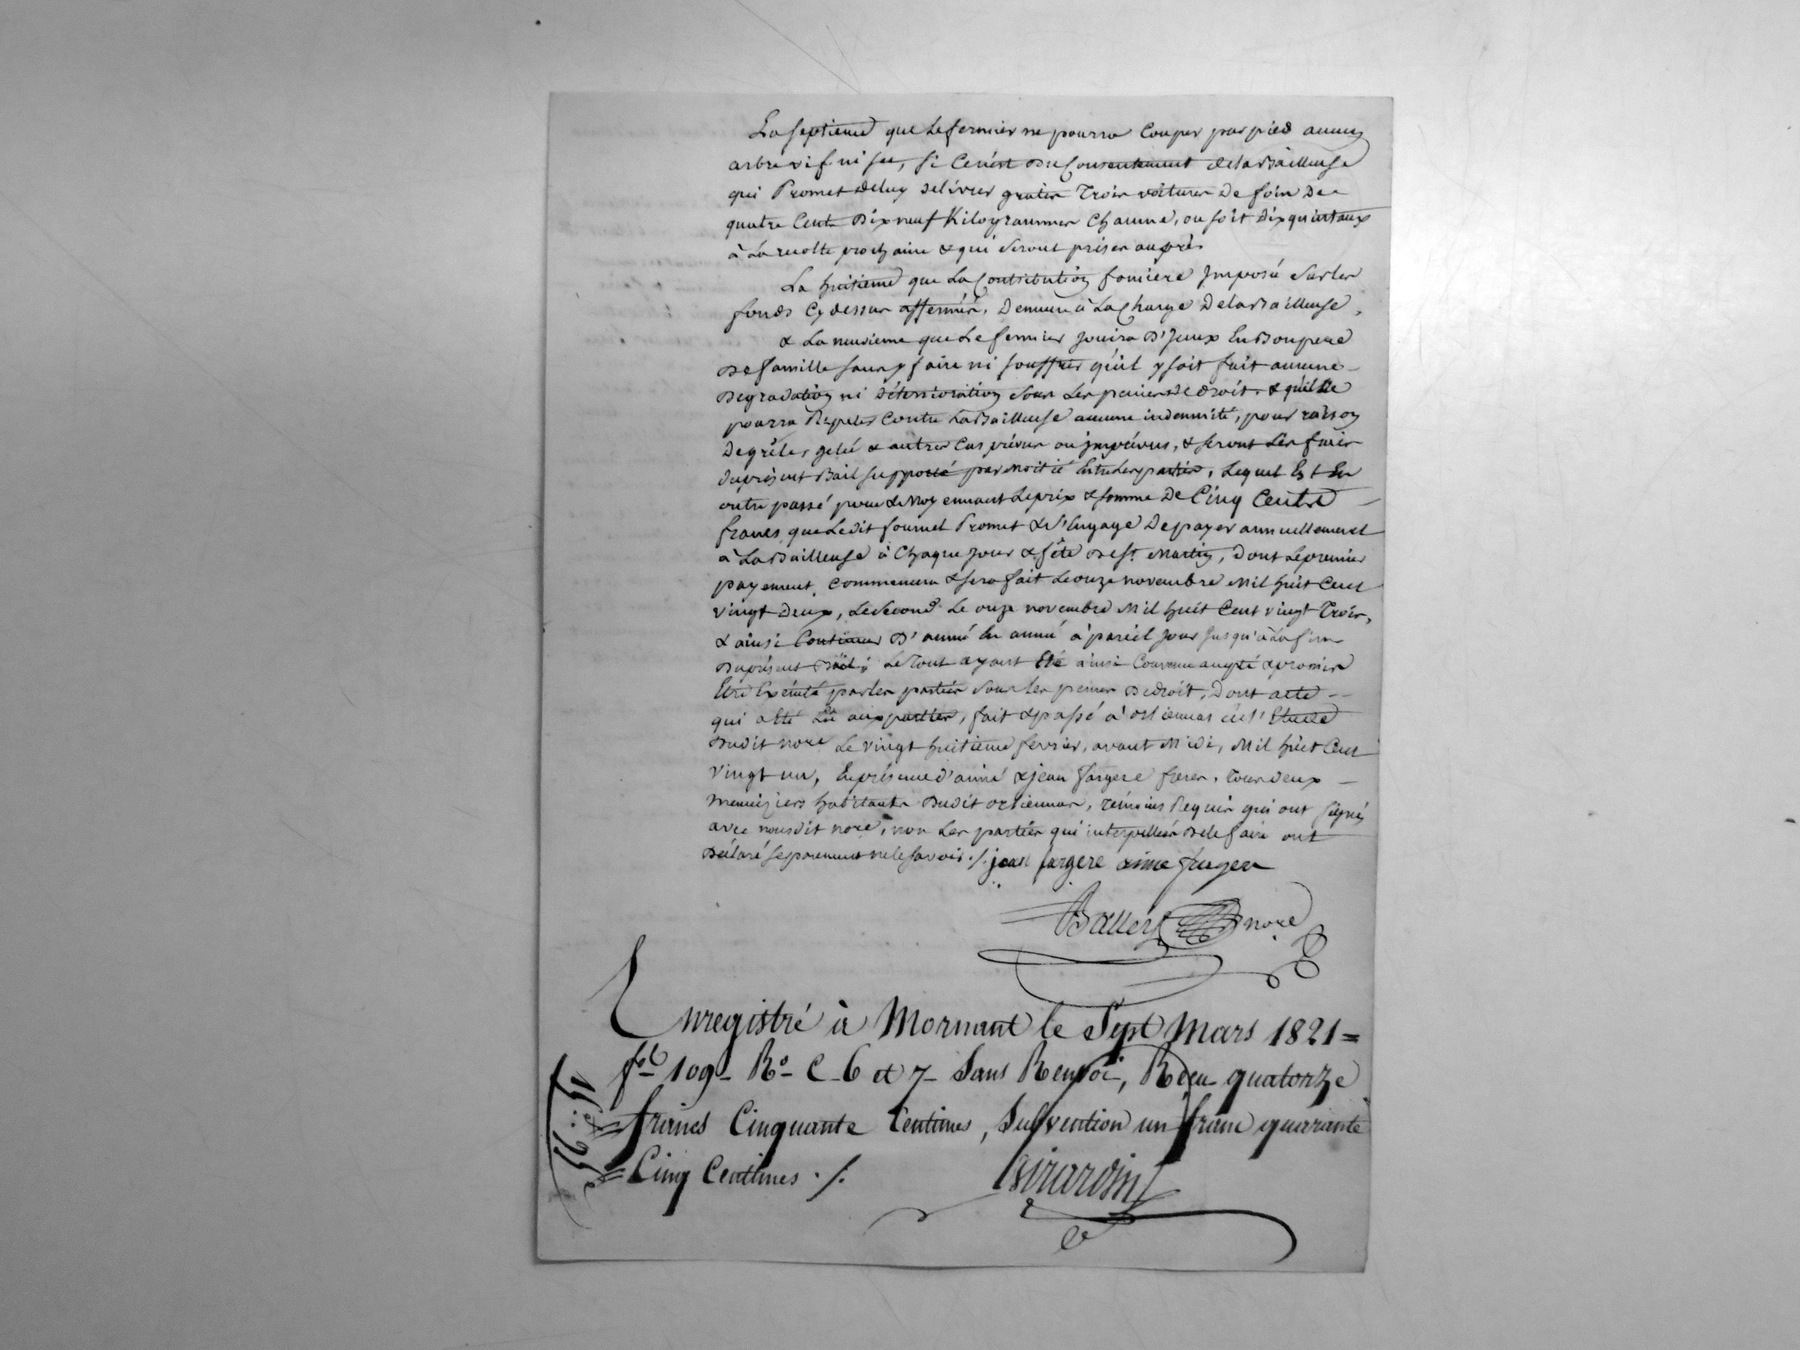 La septieme que le fermier ne pourra couper par pied aucun
arbre vif ni sec, si ce n'est du consentement de la Bailleuse
qui Promet de luy delivrer gratis Trois voitures de foin de
quatre Cent Dix neuf Kilogrammes Chacune, ou soit dix quintaux
à la recolte prochaine & qui seront prises au pré.
La huitieme que La Contribution fonciere Imposée sur les
fonds Cy dessus affermés, Demeure à La Charge De la Bailleuse,
& La neuvieme que Le fermier Jouira D'Iceux En Bon pere
De famille sans y faire ni souffrir qu'il y soit fait aucune
Degradation ni Déterioration sous Les peines De droit, & qu'il ne
pourra Repeter Contre La Bailleuse aucune indemnité, pour raison
De grêle, gelée & autres Cas prévus ou imprévus, & seront Les frais
du présent Bail supporté par moitié Entre Les parties, Lequel Est En
outre passé pour & moyennant Le prix & somme De Cinq Cents
francs, que Le dit fournel Promet & s'Engage De payer annuellement
à La Bailleuse à Chaque jour & fête De St. Martin, Dont Le premier
payement, Commencera & sera fait Le onze novembre Mil huit Cent
vingt Deux, Le Second Le onze novembre Mil huit Cent vingt Trois,
& ainsi Continuer D'année En année à pareil Jour Jusqu'à La fin
Du présent Bail; Le Tout ayant Eté ainsi Convenu accepté & promis
Etre Executé par les parties sous les peines De droit, Dont acte
qui a Eté Lû aux parties, fait & passé à orlienas En l'Etude
Dudit nore. Le vingt huitieme fevrier, avant Midi, Mil huit Cent
Vingt un, En présence d'aimé & jean fargere freres, Tous deux
menuisiers habitants Dudit orlienas, témoins Requis qui ont signés
avec nousdit nore, non Les parties qui interpellées De le faire ont
Déclaré separement ne le savoir ./. jean fargere aime fargere
nore
Enregistré à Mornant le Sept Mars 1821=
fol. 109 Ro. C. 6 et 7 Sans Renvoi, Reçu quatorze
francs Cinquante Centimes, Subvention un franc quarante
Cinq Centimes ./.
Girardin